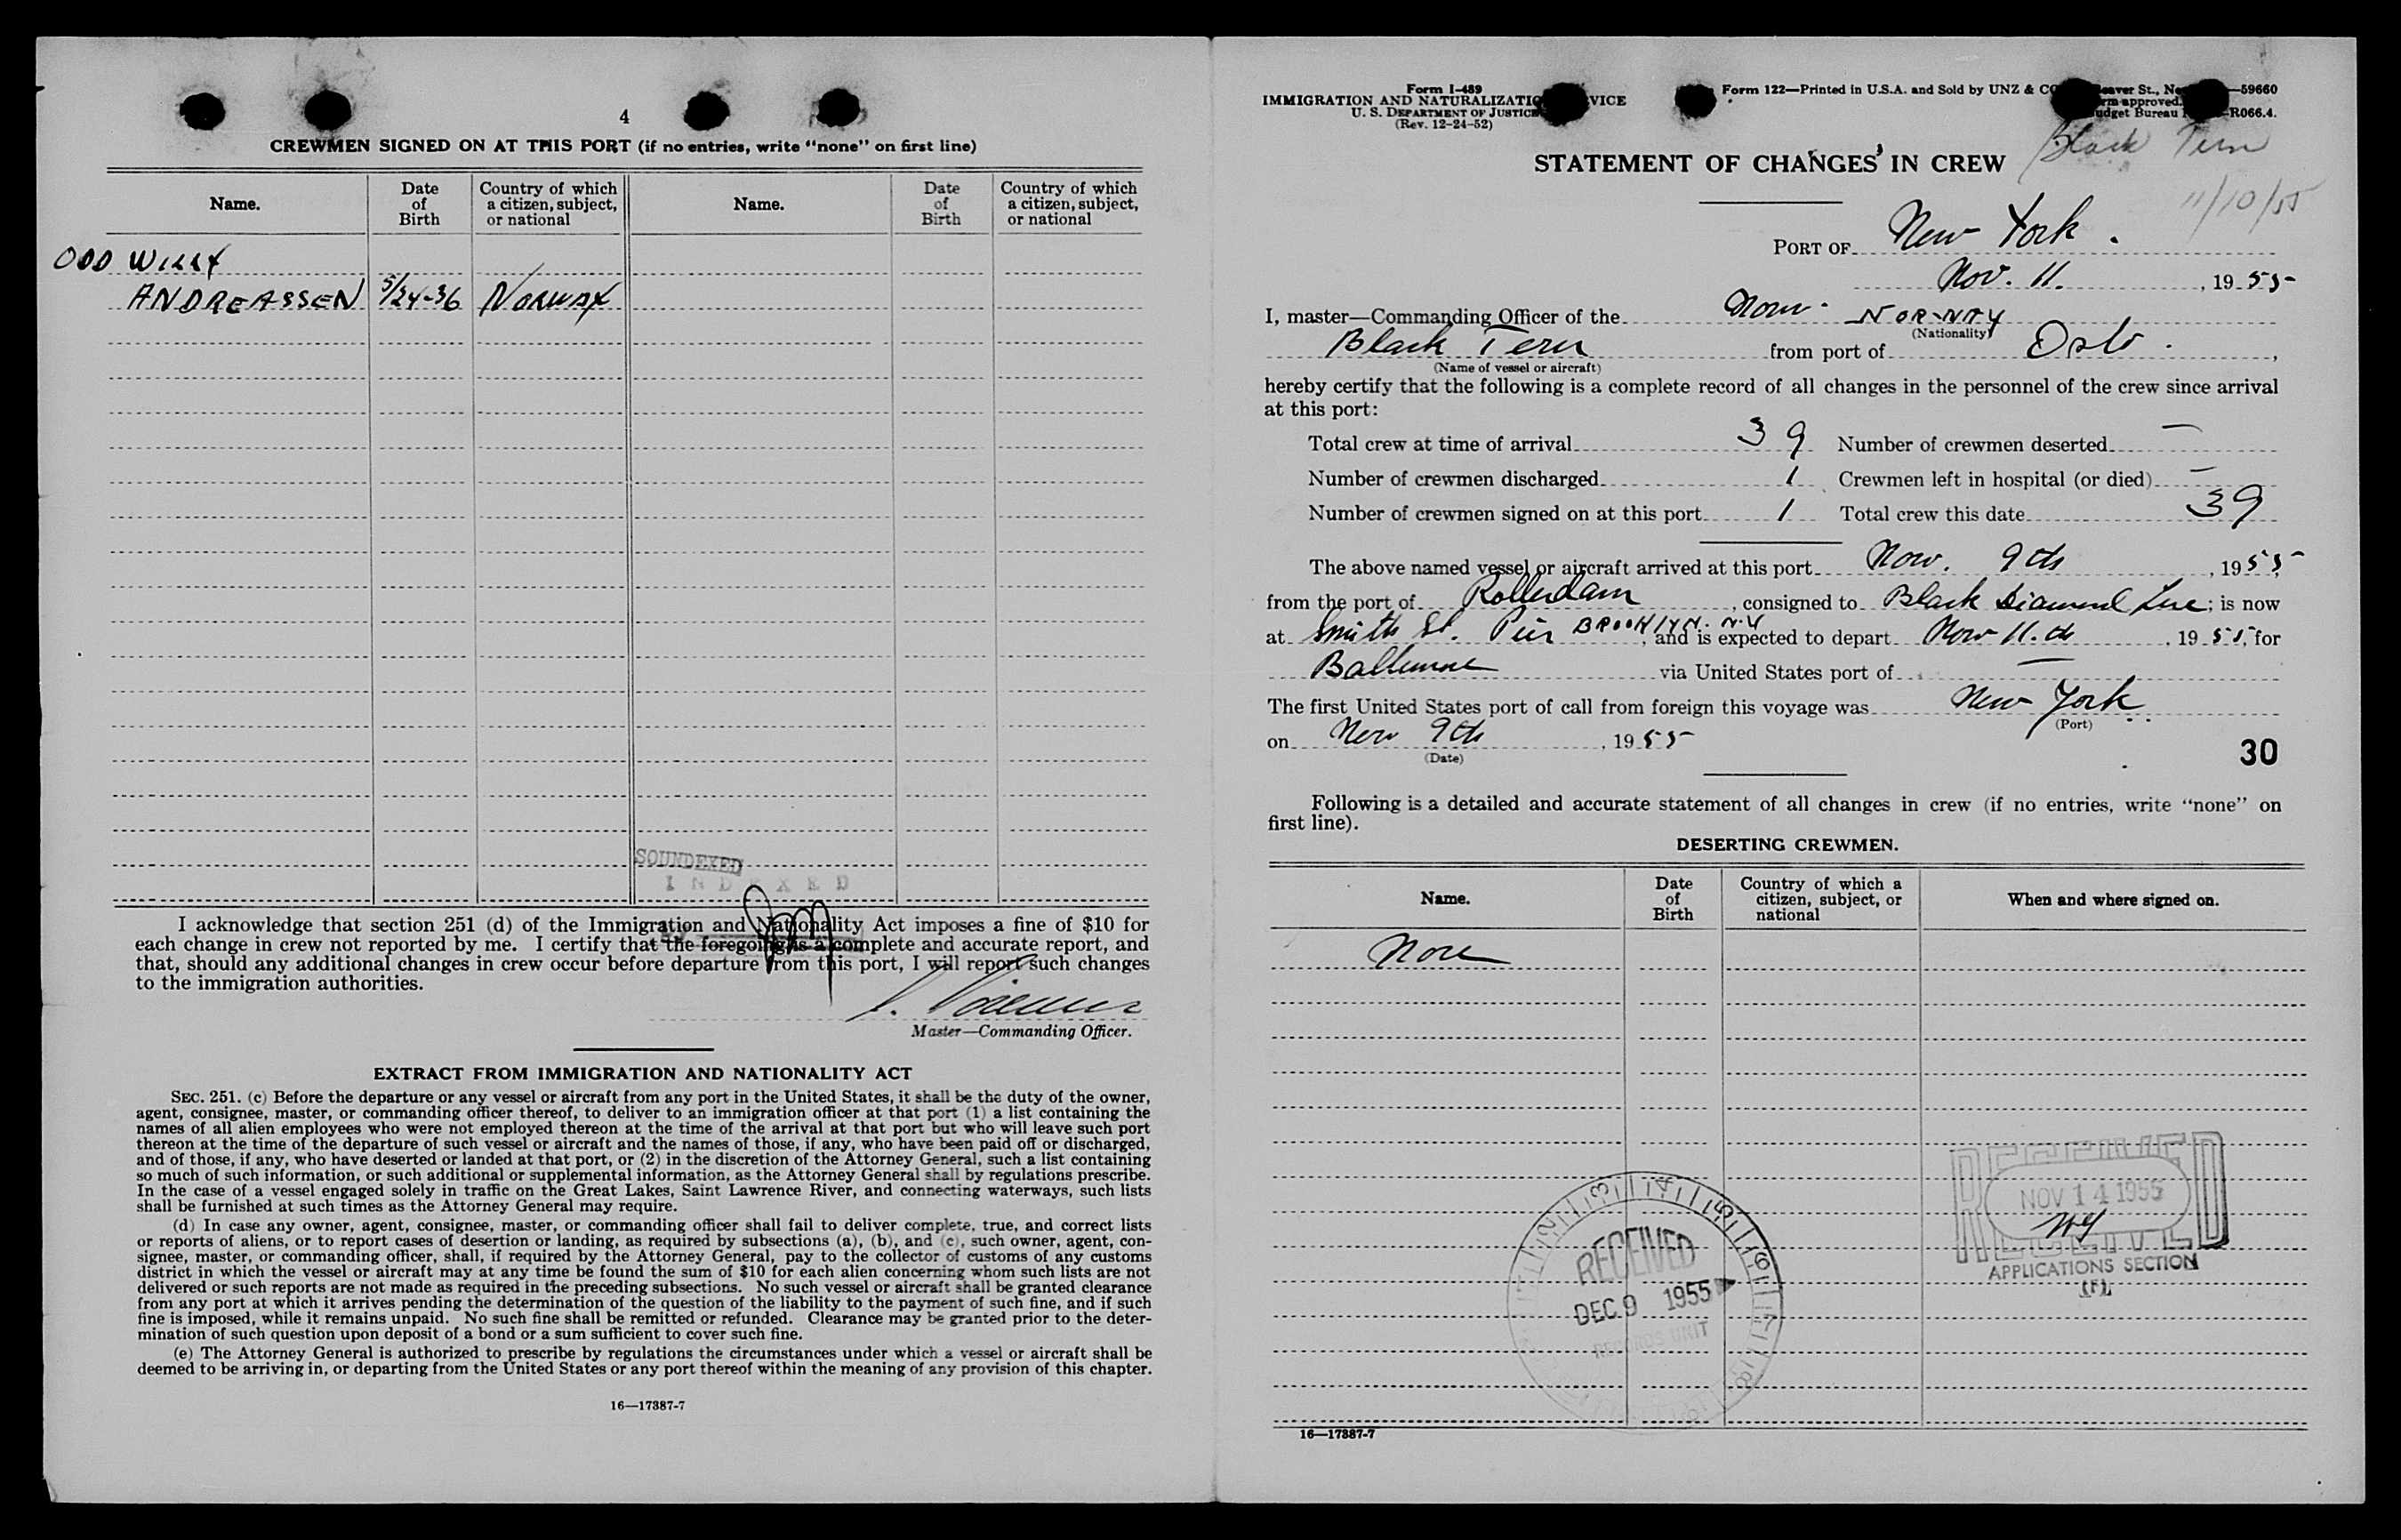 4
CREWMEN SIGNED ON AT THIS PORT (if no entries, write "none" on first line)
Name. Date of Birth Country of which a citizen, subject, or national Name. Date of Birth Country of which a citizen, subject, or national
ODD WILLY
ANDREASSEN 5/24-36 NORWAY
SOUNDEXED
INDEXED
I acknowledge that section 251 (d) of the Immigration and Nationality Act imposes a fine of $10 for
each change in crew not reported by me. I certify that the foregoing is a complete and accurate report, and
that, should any additional changes in crew occur before departure from this port, I will report such changes
to the immigration authorities.
Master—Commanding Officer.
EXTRACT FROM IMMIGRATION AND NATIONALITY ACT
SEC. 251. (c) Before the departure or any vessel or aircraft from any port in the United States, it shall be the duty of the owner,
agent, consignee, master, or commanding officer thereof, to deliver to an immigration officer at that port (1) a list containing the
names of all alien employees who were not employed thereon at the time of the arrival at that port but who will leave such port
thereon at the time of the departure of such vessel or aircraft and the names of those, if any, who have been paid off or discharged,
and of those, if any, who have deserted or landed at that port, or (2) in the discretion of the Attorney General, such a list containing
so much of such information, or such additional or supplemental information, as the Attorney General shall by regulations prescribe.
In the case of a vessel engaged solely in traffic on the Great Lakes, Saint Lawrence River, and connecting waterways, such lists
shall be furnished at such times as the Attorney General may require.
(d) In case any owner, agent, consignee, master, or commanding officer shall fail to deliver complete, true, and correct lists
or reports of aliens, or to report cases of desertion or landing, as required by subsections (a), (b), and (c), such owner, agent, con-
signee, master, or commanding officer, shall, if required by the Attorney General, pay to the collector of customs of any customs
district in which the vessel or aircraft may at any time be found the sum of $10 for each alien concerning whom such lists are not
delivered or such reports are not made as required in the preceding subsections. No such vessel or aircraft shall be granted clearance
from any port at which it arrives pending the determination of the question of the liability to the payment of such fine, and if such
fine is imposed, while it remains unpaid. No such fine shall be remitted or refunded. Clearance may be granted prior to the deter-
mination of such question upon deposit of a bond or a sum sufficient to cover such fine.
(e) The Attorney General is authorized to prescribe by regulations the circumstances under which a vessel or aircraft shall be
deemed to be arriving in, or departing from the United States or any port thereof within the meaning of any provision of this chapter.
16—17387-7
Form I-489
IMMIGRATION AND NATURALIZATION SERVICE
U. S. DEPARTMENT OF JUSTICE
(Rev. 12-24-52)
Form 122—Printed in U.S.A. and Sold by UNZ & CO. Beaver St., —59660
Form approved.
Budget Bureau —R066.4.
Black Tern
11/10/55
STATEMENT OF CHANGES IN CREW
PORT OF New York.
Nov. 11., 1955
I, master—Commanding Officer of the Norw. NORWAY
(Nationality)
Black Tern from port of Oslo.,
(Name of vessel or aircraft)
hereby certify that the following is a complete record of all changes in the personnel of the crew since arrival
at this port:
Total crew at time of arrival 39 Number of crewmen deserted —
Number of crewmen discharged 1 Crewmen left in hospital (or died) —
Number of crewmen signed on at this port 1 Total crew this date 39
The above named vessel or aircraft arrived at this port Nov. 9th, 1955
from the port of Rotterdam, consigned to Black Diamond Line; is now
at Smith St. Pier BROOKLYN. N.Y, and is expected to depart Nov 11.th, 1955, for
Baltimore via United States port of —
The first United States port of call from foreign this voyage was New York
(Port)
on Nov 9th, 1955
(Date)
30
Following is a detailed and accurate statement of all changes in crew (if no entries, write "none" on
first line).
DESERTING CREWMEN.
Name. Date of Birth Country of which a citizen, subject, or national When and where signed on.
None
RECEIVED
NOV 14 1955
APPLICATIONS SECTION
(F)
RECEIVED
DEC 9 1955
RECORDS UNIT
16—17387-7